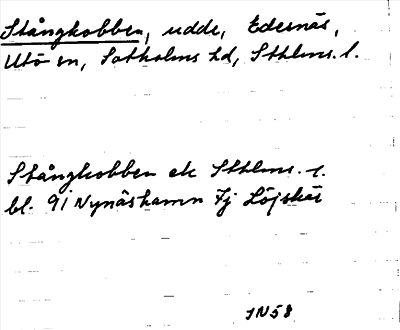 Stångkobben, udde, Edesnäs,
Utö sn, Sotholms hd, Sthlms. l.
Stångkobben ek Sthlms. l.
bl. 9i Nynäshamn Fj Löjskär
IN58